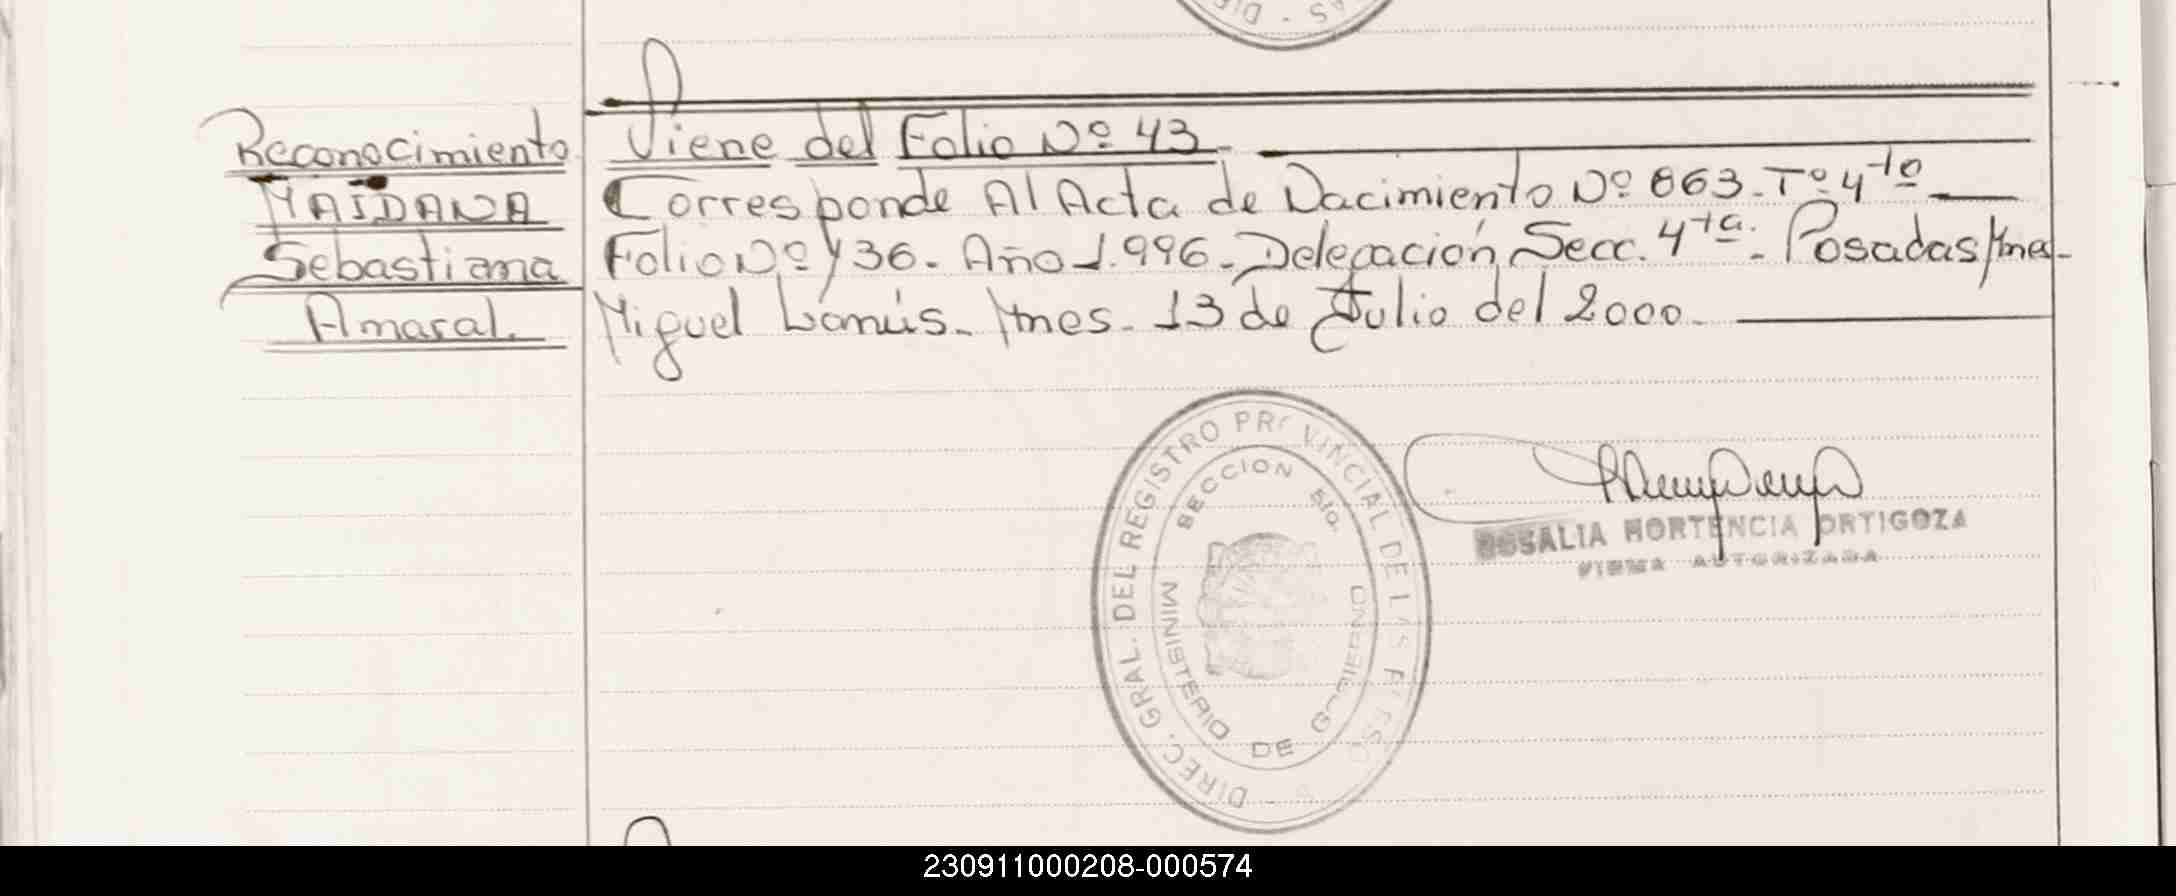 Reconocimiento
MAIDANA
Sebastiana
Amaral.
Viene del Folio Nº 43
Corresponde Al Acta de Nacimiento Nº 863. Tº 4to
Folio Nº 136. Año 1.996. Delegación Secc. 4ta. Posadas Mnes.
Miguel Lanús. Mnes. 13 de Julio del 2000.
DIREC. GRAL. DEL REGISTRO PROVINCIAL DE LAS
SECCION 5to.
MINISTERIO DE GOBIERNO
ROSALIA HORTENCIA ORTIGOZA
FIRMA AUTORIZADA
230911000208-000574